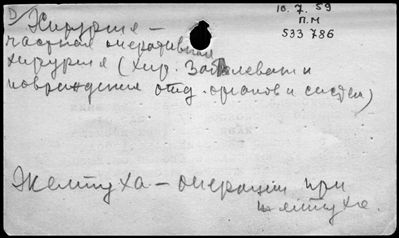 1) Хирургия —
частная оперативная
хирургия (хир. Заболевания и
повреждения отд. органов и систем)
10.7.59
П.М
533786
Желтуха — операции при
желтухе.